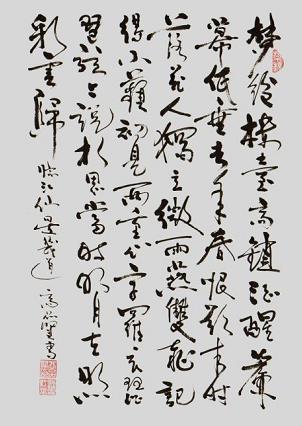 梦後楼臺高鎖酒醒簾
幕低垂去年春恨却来时
落花人獨立微雨燕雙飛記
得小蘋初見两重心字羅衣琵
琶弦上説相思當時明月在照
彩雲歸
臨江仙晏幾道 高書